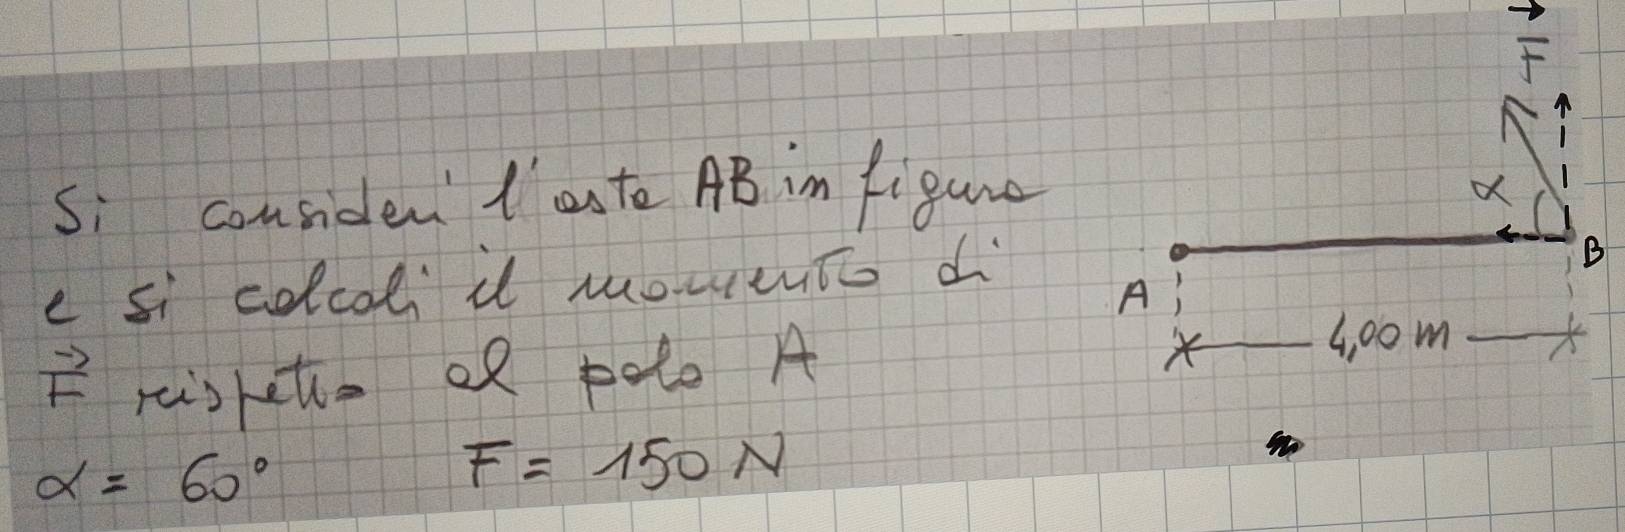 Si consideri l'asta AB in figura
e si calcoli il momento di
F rispetto al polo A
α = 60° F = 150 N
F
α
B
A
4,00 m